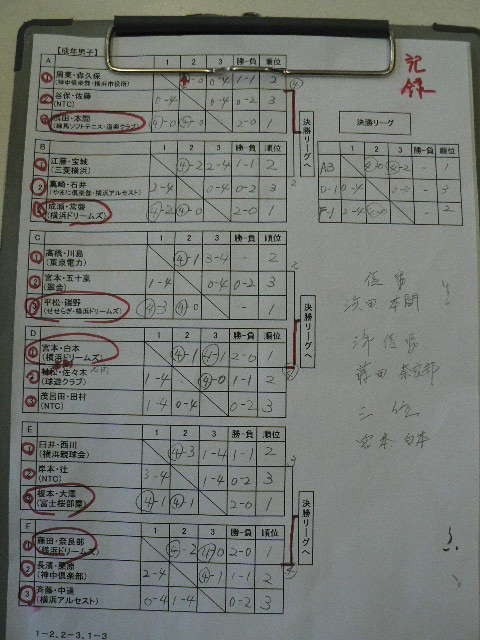 【成年男子】
記録
A 1 2 3 勝一負 順位
1 周東・森久保 ④-0 0-4 1-1 2
(神中倶楽部・横浜市役所)
2 谷保・佐藤 0-4 0-4 0-2 3
(NTC)
3 濱田・本間 ④-0 ④-0 2-0 1
(練馬ソフトテニス・道楽クラブ)
決勝リーグへ
決勝リーグ
1 2 3 勝一負 順位
AB ④-0 ④-2 - 1
D-1 0-4 0-4 - 3
F-1 2-4 ④-0 - 2
B 1 2 3 勝一負 順位
1 江藤・宝城 ④-2 2-4 1-1 2
(三菱横浜)
2 高崎・石井 2-4 0-4 0-2 3
(やまに倶楽部・横浜アルセスト)
3 成瀬・常磐 ④-2 ④-0 2-0 1
(横浜ドリームズ)
C 1 2 3 勝一負 順位
1 高橋・川島 ④-1 3-4 - 2
(東京電力)
2 宮本・五十嵐 1-4 0-4 0-2 3
(翠会)
3 平松・磯野 ④-3 ④-0 - 1
(せせらぎ・横浜ドリームズ)
決勝リーグへ
優勝
濱田 本間
準優勝
藤田 奈良部
三位
宮本 白本
D 1 2 3 勝一負 順位
1 宮本・白本 ④-1 ④-1 2-0 1
(横浜ドリームズ)
2 ・佐々木 1-4 ④-0 1-1 2
(球遊クラブ)
3 茂呂田・田村 1-4 0-4 0-2 3
(NTC)
E 1 2 3 勝一負 順位
1 臼井・西川 ④-3 1-4 1-1 2
(横浜親球会)
2 岸本・辻 3-4 1-4 0-2 3
(NTC)
3 榎本・大澤 ④-1 ④-1 2-0 1
(富士桜部屋)
決勝リーグへ
F 1 2 3 勝一負 順位
1 藤田・奈良部 ④-2 ④-0 2-0 1
(横浜ドリームズ)
2 長濱・栗原 2-4 ④-1 1-1 2
(神中倶楽部)
3 斉藤・中道 0-4 1-4 0-2 3
(横浜アルセスト)
1-2、2-3、1-3